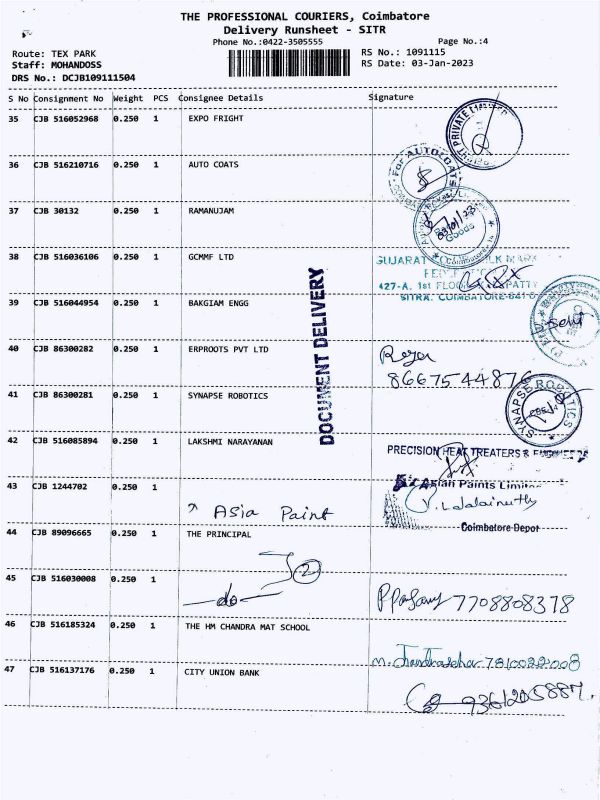 THE PROFESSIONAL COURIERS, Coimbatore
Delivery Runsheet - SITR
Phone No.:0422-3505555
Page No.:4
Route: TEX PARK
RS No.: 1091115
Staff: MOHANDOSS
RS Date: 03-Jan-2023
DRS No.: DCJB109111504
S No Consignment No Weight PCS Consignee Details Signature
35 CJB 516052968 0.250 1 EXPO FRIGHT
PRIVATE
36 CJB 516210716 0.250 1 AUTO COATS
For AUTO COATS
37 CJB 30132 0.250 1 RAMANUJAM
03/01/23
Goods
38 CJB 516036106 0.250 1 GCMMF LTD
GUJARAT
427-A. 1st
SITRA. COIMBATORE-641
39 CJB 516044954 0.250 1 BAKGIAM ENGG
DOCUMENT DELIVERY
40 CJB 86300282 0.250 1 ERPROOTS PVT LTD
41 CJB 86300281 0.250 1 SYNAPSE ROBOTICS
SYNAPSE ROBOTICS
42 CJB 516085894 0.250 1 LAKSHMI NARAYANAN
PRECISION HEAT TREATERS &
43 CJB 1244702 0.250 1
Asia Paint
Asian Paints Limited
Coimbatore Depot
44 CJB 89096665 0.250 1 THE PRINCIPAL
2
45 CJB 516030008 0.250 1
do
7708808378
46 CJB 516185324 0.250 1 THE HM CHANDRA MAT SCHOOL
47 CJB 516137176 0.250 1 CITY UNION BANK